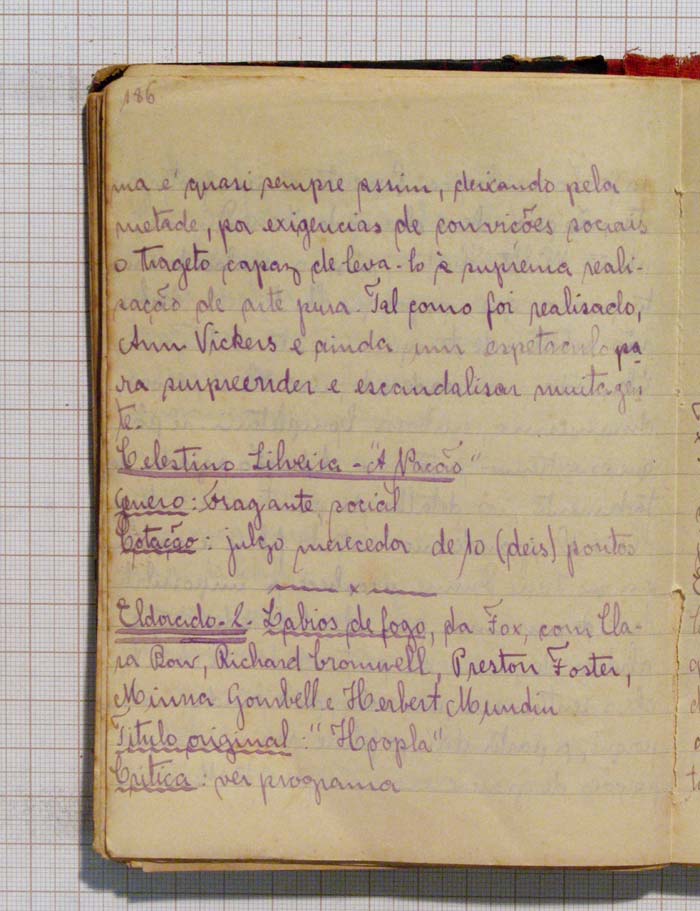 186
ma é quasi sempre assim, deixando pela
metade, por exigencias de convicções sociais
o trageto capaz de leva-lo à suprema reali-
sação de arte pura. Tal como foi realisado,
Ann Vickers e ainda um espetaculo pa
ra surpreender e escandalisar muita gen
te.
Celestino Silveira - "A Nação"
Genero: Fragante social
Cotação: julgo merecedor de 10 (deis) pontos
x
Eldorado - 2 - Labios de fogo, da Fox, com Cla-
ra Bow, Richard Cromwell, Preston Foster,
Minna Gombell e Herbert Mundin
Titulo original: "Hoopla"
Critica: ver programa